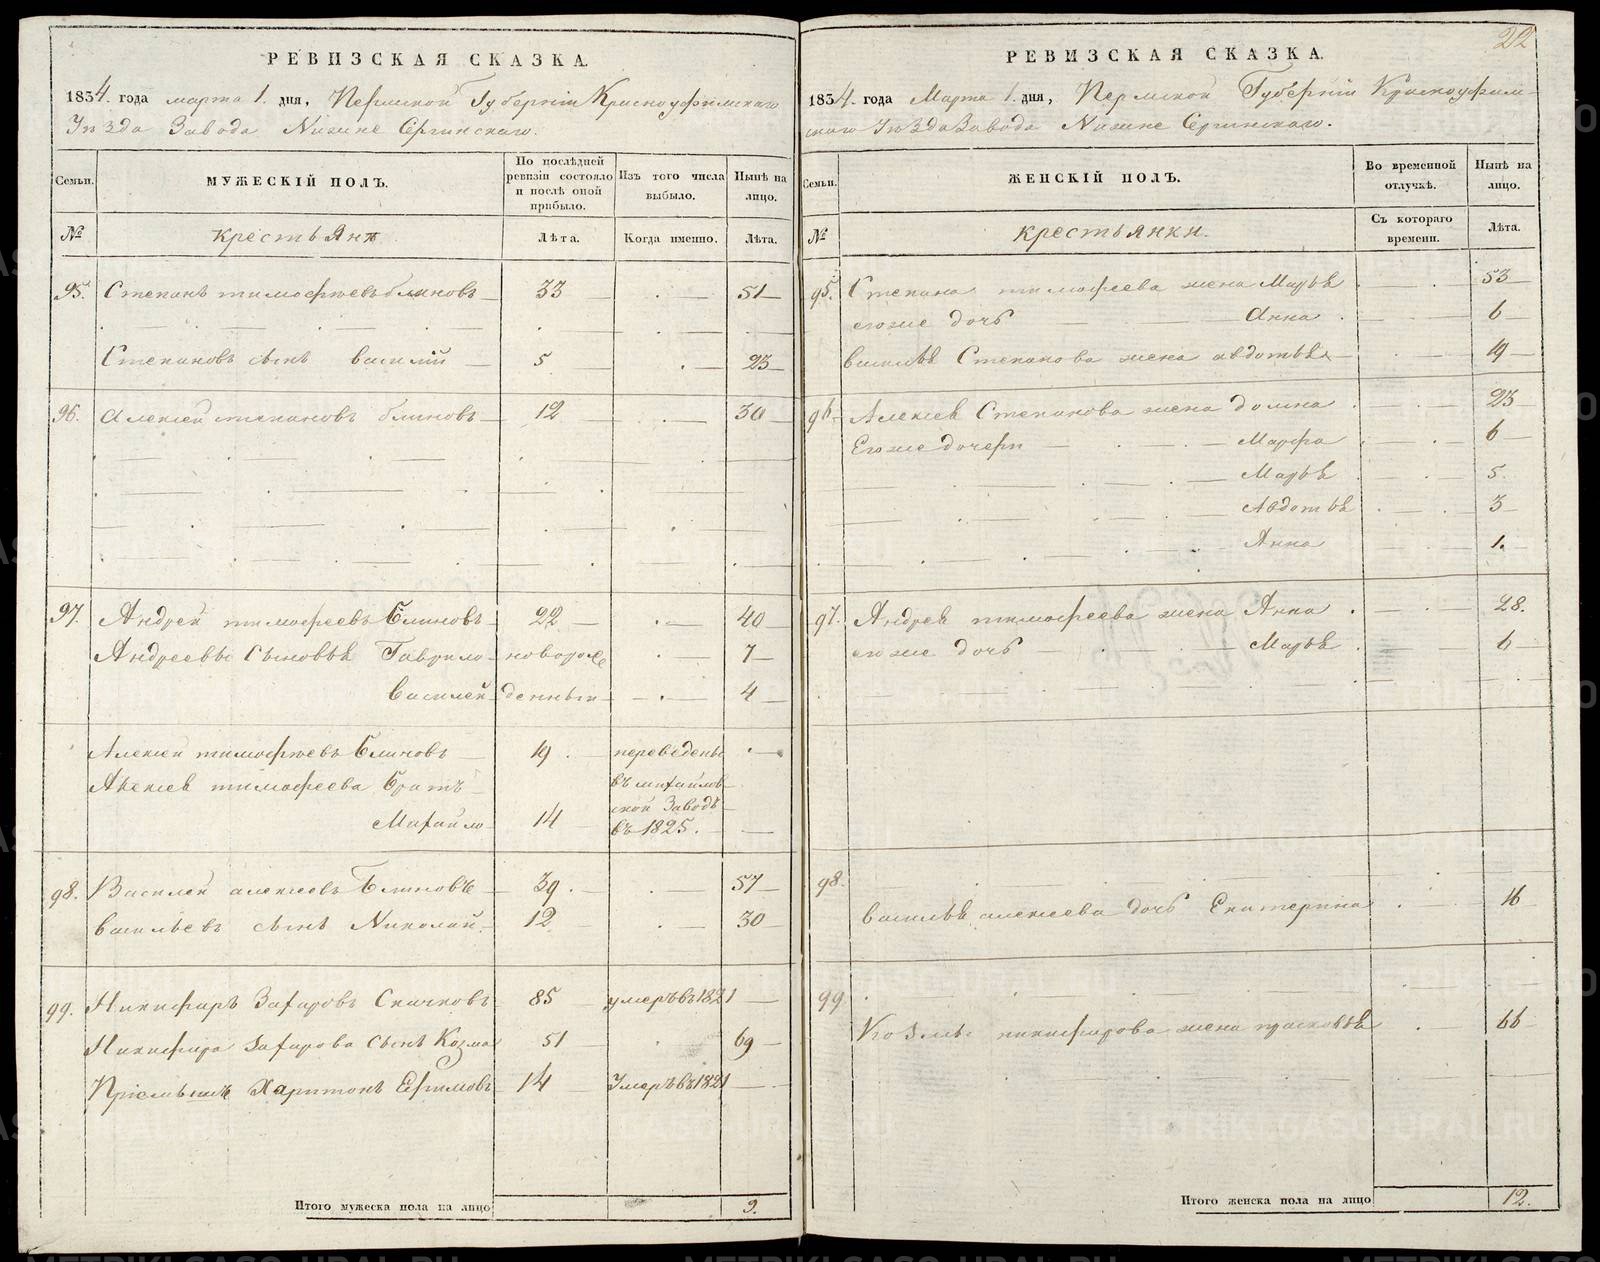 РЕВИЗСКАЯ СКАЗКА.
1834. года марта 1. дня, Пермской Губерніи Красноуфимскаго
Уѣзда Завода Нижне Сергинскаго.
Семьи.
МУЖЕСКІЙ ПОЛЪ.
По послѣдней ревизіи состояло и послѣ оной прибыло.
Изъ того числа выбыло.
Нынѣ на лицо.
№
Крестьянъ
Лѣта.
Когда именно.
Лѣта.
95. Степанъ тимофѣевъ блиновъ 33 51
Степановъ сынъ василій 5 23
96. Алексей степановъ блиновъ 12 30
97. Андрей тимофеевъ Блиновъ 22 40
Андреевы Сыновья Гаврило новорож 7
василей денныи 4
Алексей тимофѣевъ Блиновъ 19 переведены
Алексея тимофеева Братъ въ михайлов
ской Заводъ
Михайло 14 въ 1825.
98. Василей алексеевъ Блиновъ 39. 57
васильевъ сынъ Николай 12 30
99. Никифоръ Захаровъ Скачковъ 85 умеръ въ 1821
Никифора Захарова сынъ Козма 51 69
Пріемышъ Харитонъ Ефимовъ 14 Умеръ въ 1821
Итого мужеска пола на лицо 9.
22
РЕВИЗСКАЯ СКАЗКА.
1834. года Марта 1. дня, Пермской Губерніи Красноуфим
скаго Уѣзда Завода Нижне Сергинскаго.
Семьи.
ЖЕНСКІЙ ПОЛЪ.
Во временной отлучкѣ.
Нынѣ на лицо.
№
Крестьянки.
Съ котораго времени.
Лѣта.
95. Степана тимофеева жена Марья 53
егоже дочь Анна 6
василья Степанова жена авдотья 19
96. Алексея Степанова жена домна 23
Егоже дочери Марфа 6
Марья 5.
Авдотья 3
Анна 1.
97. Андрея тимофеева жена Анна 28.
егоже дочь Марья 6
98.
василья алексеева дочь Екатерина 16
99.
Козмы никифорова жена прасковья 66
Итого женска пола на лицо 12.
METRIKI.GASO-URAL.RU